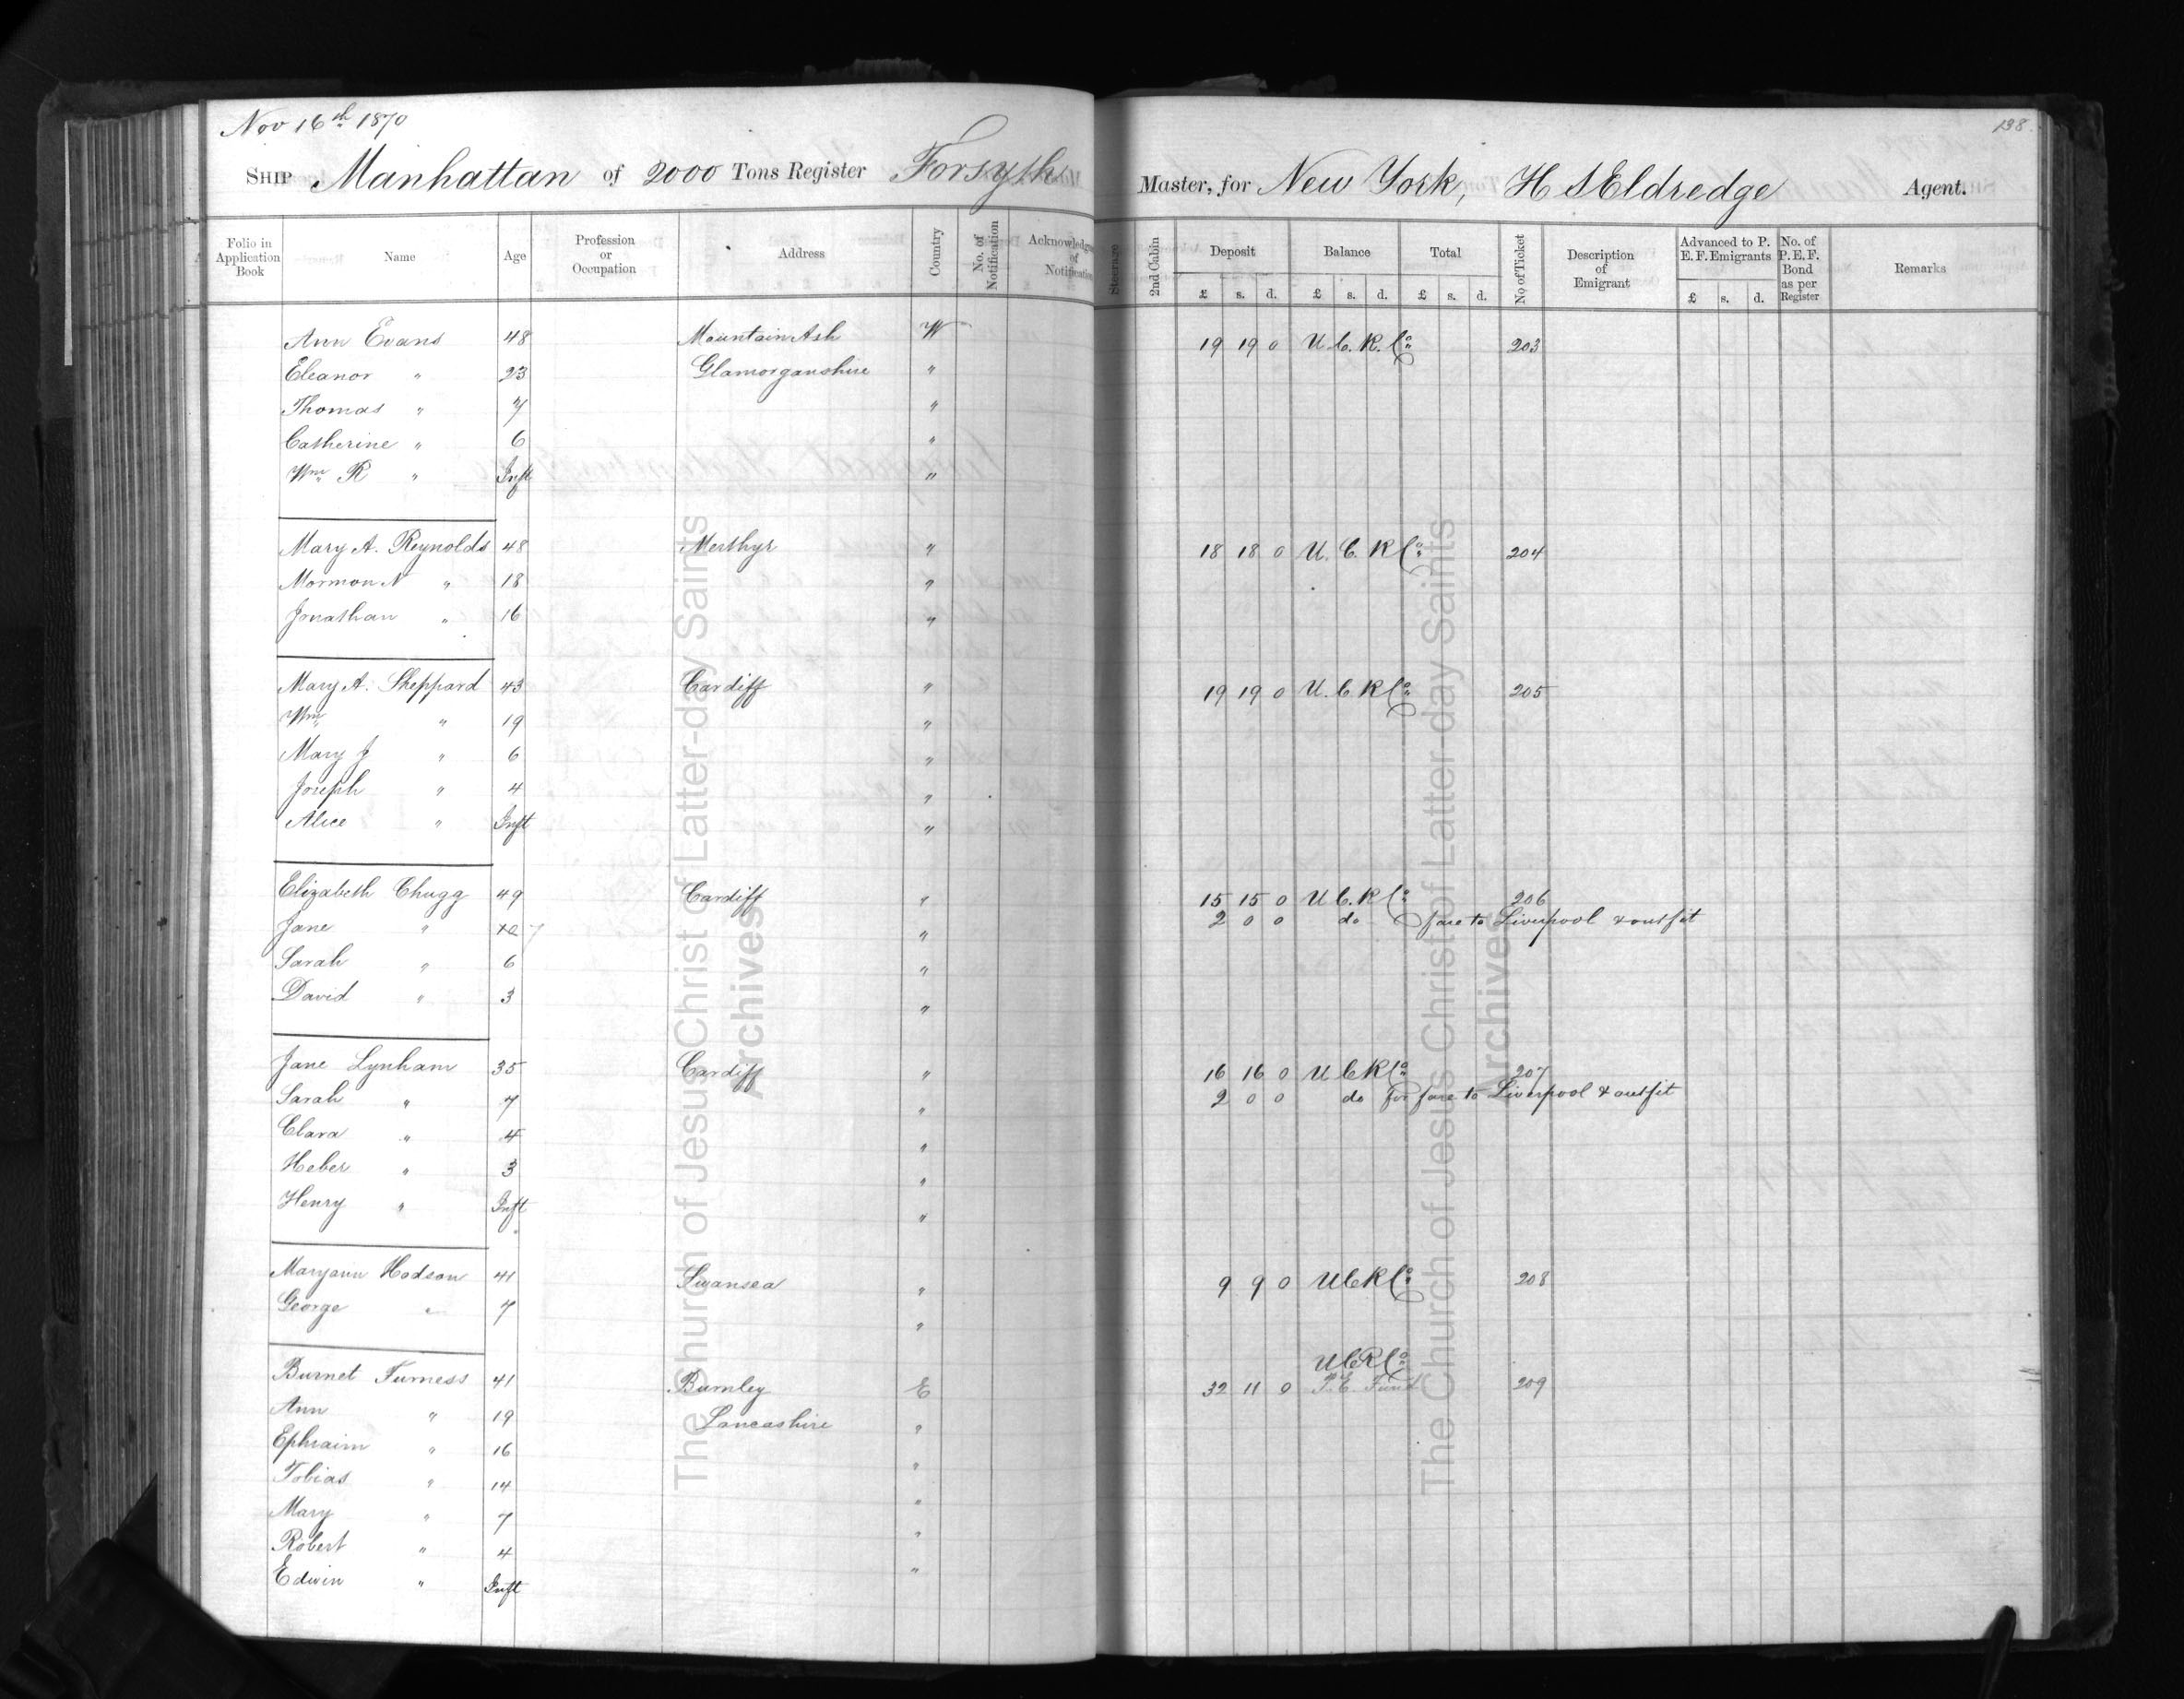 Nov 16th 1870
198
SHIP Manhattan of 2000 Tons Register Forsyth Master, for New York, H S Eldredge Agent.
Folio in Application Book Name Age Profession or Occupation Address Country No. of Notification Acknowledgm of Notification Steerage 2nd Cabin Deposit £ s. d. Balance £ s. d. Total £ s. d. No of Ticket Description of Emigrant Advanced to P. E. F. Emigrants £ s. d. No. of P. E. F. Bond as per Register Remarks
Ann Evans 48 Mountain Ash W 19 19 0 U. C. R. Co 203
Eleanor " 23 Glamorganshire "
Thomas " 7 "
Catherine " 6 "
Wm R " Inft "
Mary A. Reynolds 48 Merthyr " 18 18 0 U. C. R Co 204
Mormon N " 18 "
Jonathan " 16 "
Mary A. Sheppard 43 Cardiff " 19 19 0 U. C R Co 205
Wm " 19 "
Mary J " 6 "
Joseph " 4 "
Alice " Inft "
Elizabeth Chugg 49 Cardiff " 15 15 0 U C. R Co 206
2 0 0 do fare to Liverpool & outfit
Jane " 7 "
Sarah " 6 "
David " 3 "
Jane Lynham 35 Cardiff " 16 16 0 U C R Co 207
2 0 0 do for fare to Liverpool & outfit
Sarah " 7 "
Clara " 4 "
Heber " 3 "
Henry " Inft "
Maryann Hodson 41 Swansea " 9 9 0 U C R Co 208
George " 7 "
U C R Co
Burnet Furness 41 Burnley E 32 11 0 P. E. Fund 209
Ann " 19 Lancashire "
Ephraim " 16 "
Tobias " 14 "
Mary " 7 "
Robert " 4 "
Edwin " Inft
The Church of Jesus Christ of Latter-day Saints
Archives
The Church of Jesus Christ of Latter-day Saints
Archives